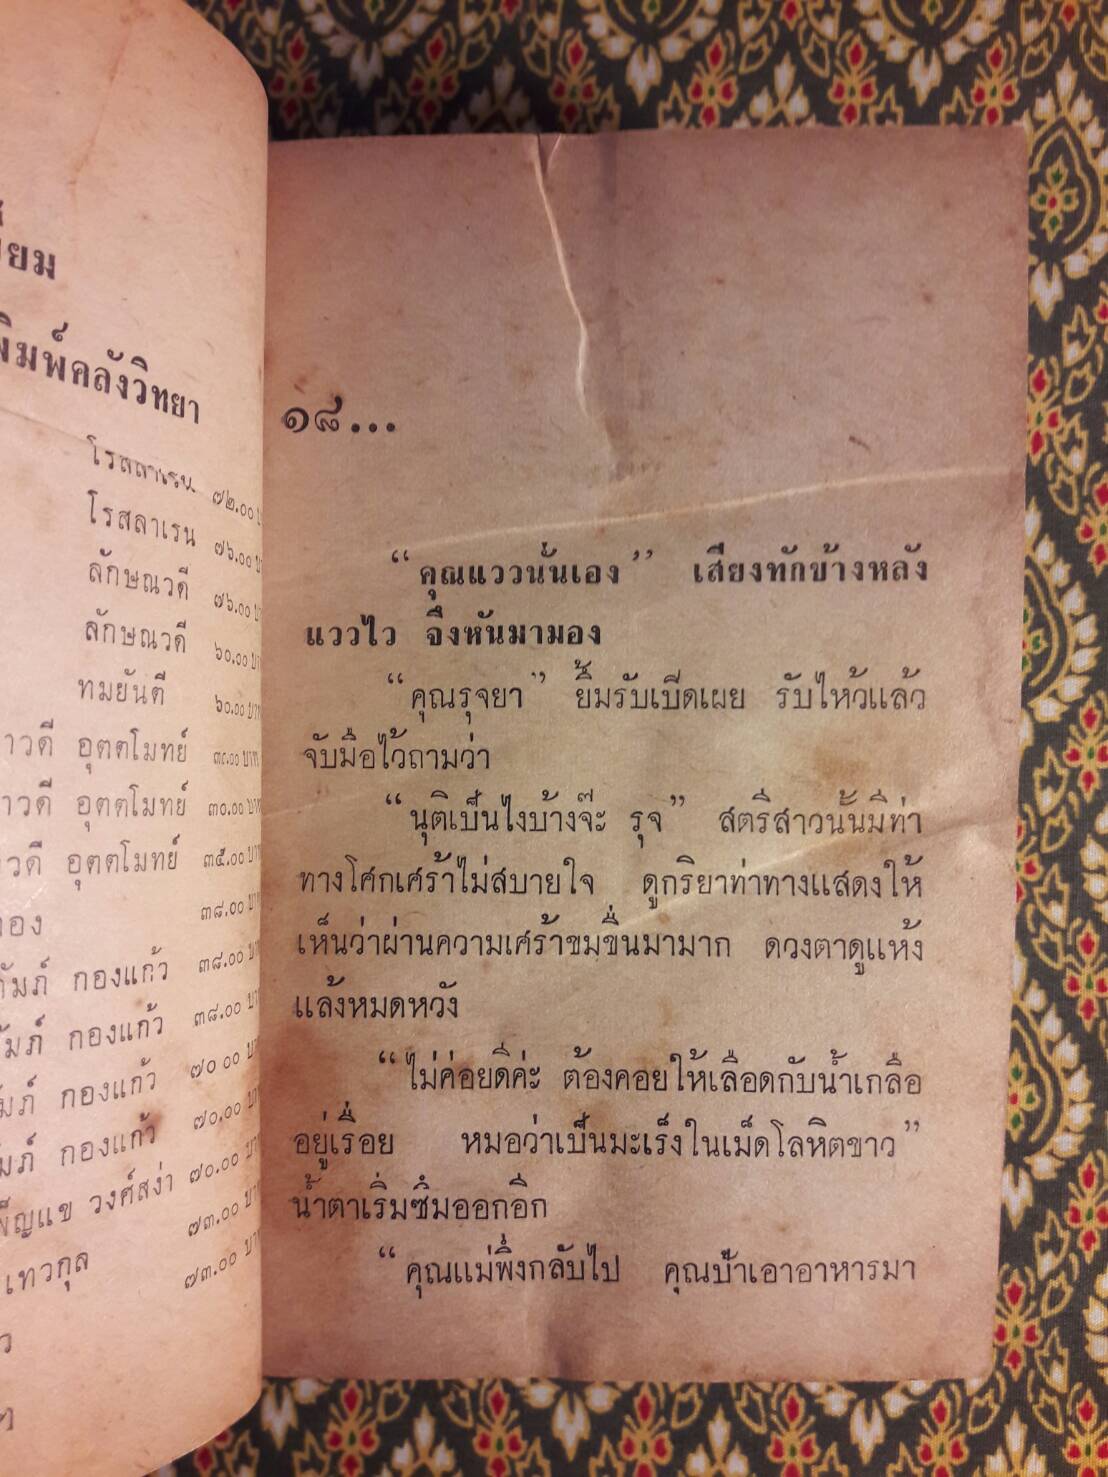 พิมพ์คลังวิทยา
โรสลาเรน ๗๒.๐๐
โรสลาเรน ๗๖.๐๐
ลักษณวดี ๗๖.๐๐
ลักษณวดี ๖๐.๐๐
ทมยันตี ๖๐.๐๐
อุตตโมทย์ บาท
อุตตโมทย์ ๓๐.๐๐
อุตตโมทย์ ๓๕.๐๐
๓๘.๐๐
กองแก้ว ๓๘.๐๐
กองแก้ว ๓๘.๐๐
กองแก้ว ๗๐.๐๐
กองแก้ว ๗๐.๐๐
วงศ์สง่า ๗๐.๐๐
เทวกุล ๗๓.๐๐
๗๓.๐๐
๑๘...
“คุณแววนั่นเอง” เสียงทักข้างหลัง
แววไว จึงหันมามอง
“คุณรุจยา” ยิ้มรับเบิดเผย รับไหว้แล้ว
จับมือไว้ถามว่า
“นุติเป็นไงบ้างจ๊ะ รุจ” สตรีสาวนั้นมีท่า
ทางโศกเศร้าไม่สบายใจ ดูกริยาท่าทางแสดงให้
เห็นว่าผ่านความเศร้าขมขื่นมามาก ดวงตาดูแห้ง
แล้งหมดหวัง
“ไม่ค่อยดีค่ะ ต้องคอยให้เลือดกับน้ำเกลือ
อยู่เรื่อย หมอว่าเป็นมะเร็งในเม็ดโลหิตขาว”
น้ำตาเริ่มซึมออกอีก
“คุณแม่พึ่งกลับไป คุณป้าเอาอาหารมา